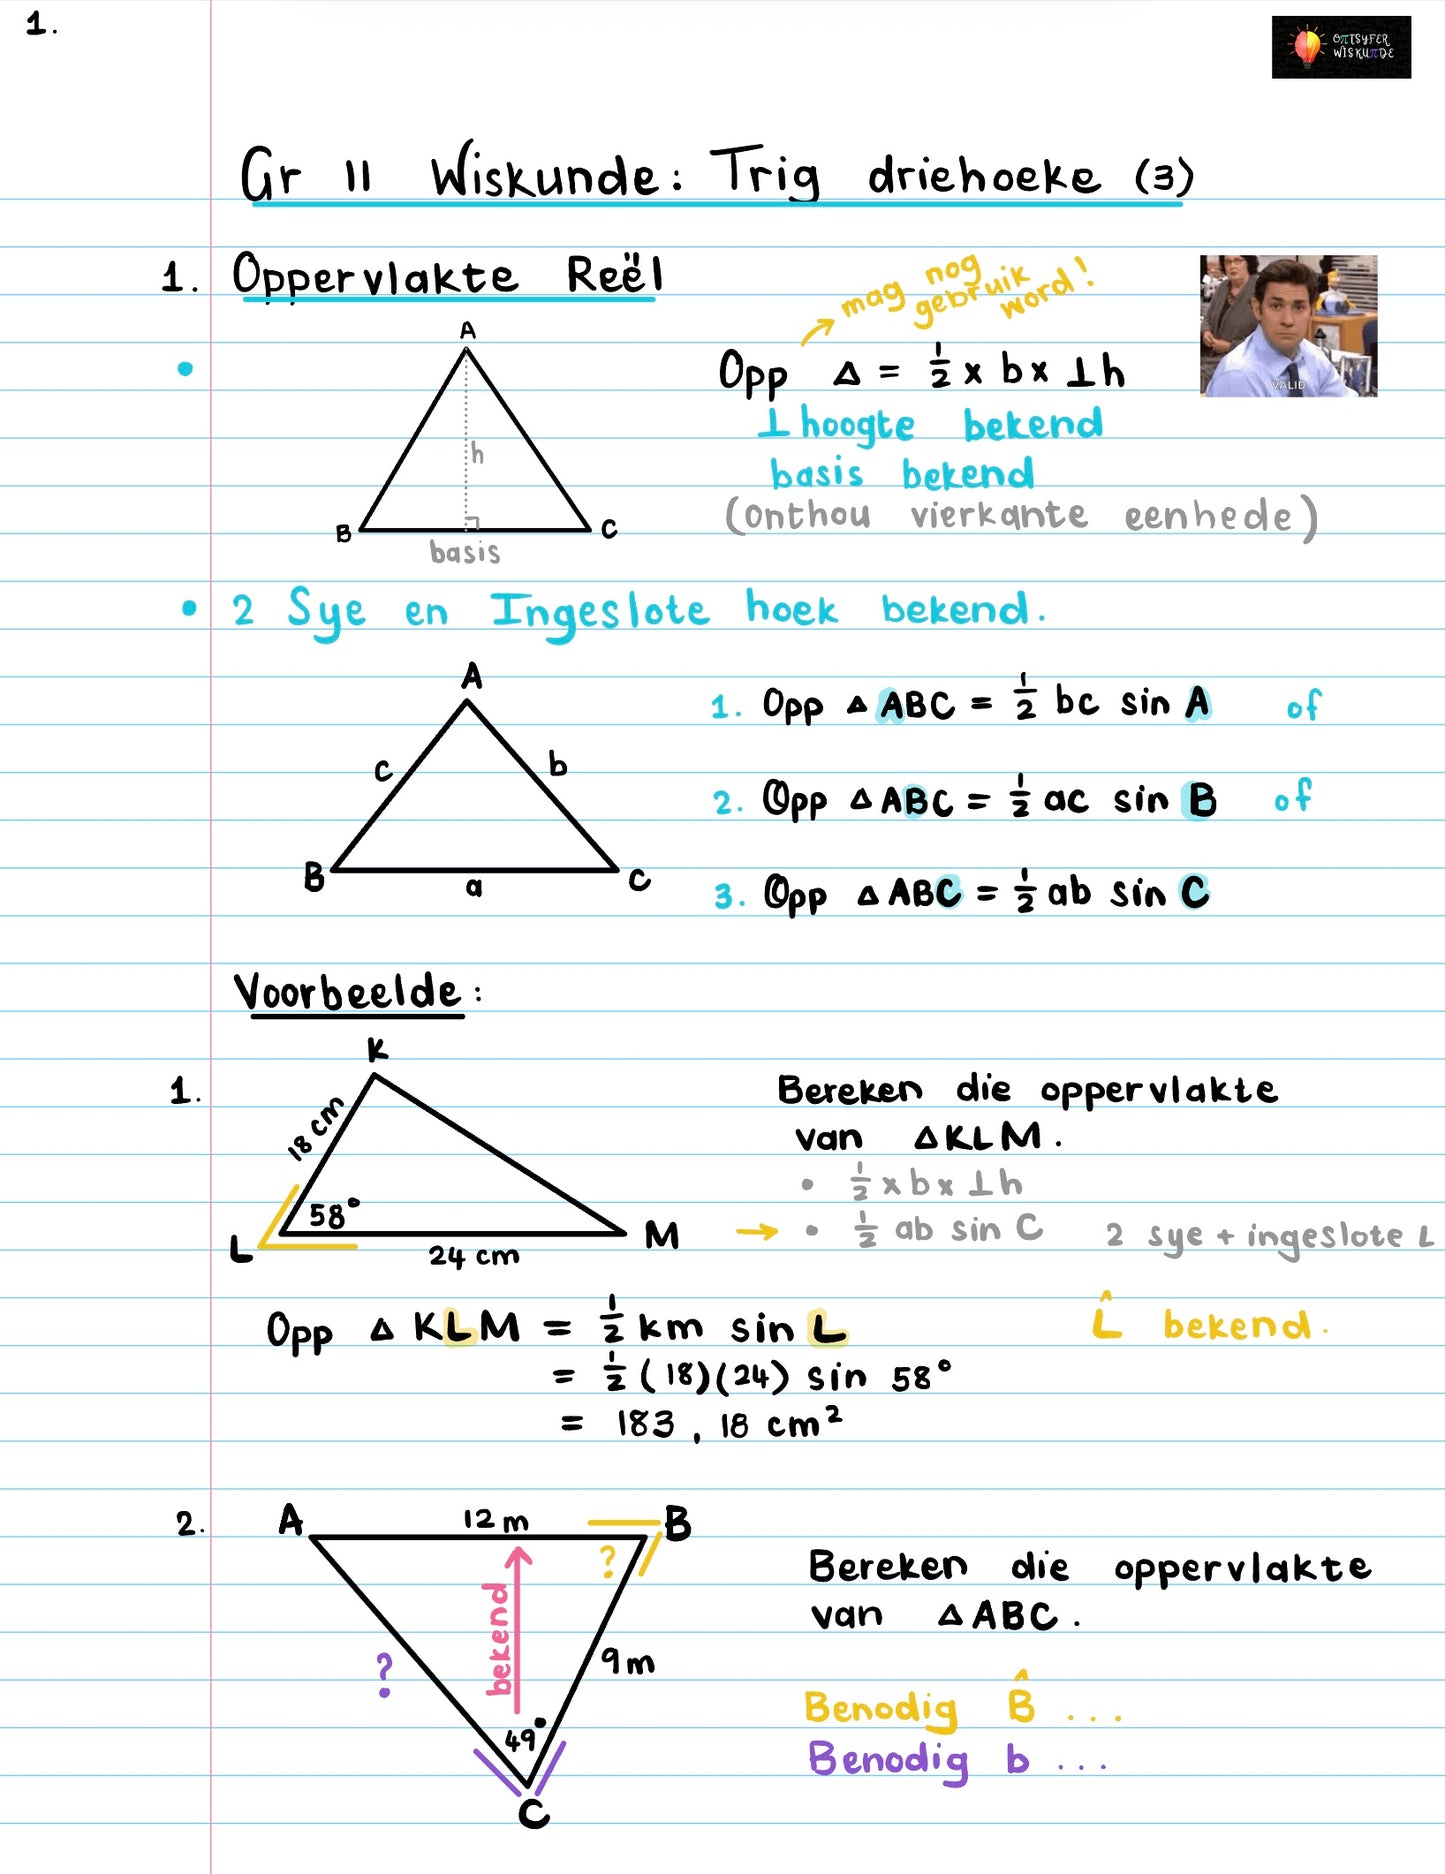 1.
OπTSYFER
WISKUπDE
Gr 11 Wiskunde: Trig driehoeke (3)
1. Oppervlakte Reël
mag nog
gebruik
word!
A
h
B
C
basis
Opp Δ = 1/2 × b × ⊥h
VALID
⊥hoogte bekend
basis bekend
(onthou vierkante eenhede)
• 2 Sye en Ingeslote hoek bekend.
A
c
b
B
a
C
1. Opp Δ ABC = 1/2 bc sin A of
2. Opp Δ ABC = 1/2 ac sin B of
3. Opp Δ ABC = 1/2 ab sin C
Voorbeelde:
1.
K
18 cm
58°
L
M
24 cm
Bereken die oppervlakte
van ΔKLM.
• 1/2 × b × ⊥h
→ • 1/2 ab sin C 2 sye + ingeslote L
Opp Δ KLM = 1/2 km sin L
L̂ bekend.
= 1/2 (18)(24) sin 58°
= 183,18 cm²
2.
A
12 m
B
?
bekend
?
9m
49°
C
Bereken die oppervlakte
van ΔABC.
Benodig B̂ ...
Benodig b ...